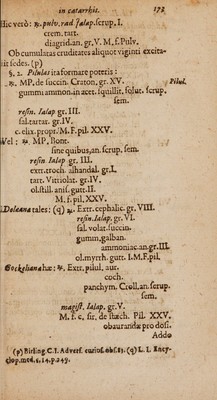 in catarrhis. 173
Hic verò: ℞. pulv. rad Jalap. scrup. I.
crem. tart.
diagrid. an. gr. V. M. f. Pulv.
Ob cumulatas cruditates aliquot viginti excita-
it sedes. (p)
§. 2. Pilulas ita formare poteris:
℞. MP. de succin. Craton. gr. XV. Pilul.
gummi ammon. in acet. squillit. solut. scrup.
sem.
resin. Jalap gr. III.
sal. tartar. gr. IV.
c. elix. propr. M. F. pil. XXV.
Vel: ℞. MP. Bont.
sine quibus, an. scrup. sem.
resin Jalap gr. III.
extr. troch. alhandal. gr. I.
tart. Vitriolat. gr. IV.
ol. still. anis. gutt. II.
M. f. pil. XXV.
Doleana tales: (q) ℞. Extr. cephalic. gr. VIII.
resin. Jalap. gr. VI.
sal. volat. succin.
gumm. galban.
ammoniac. an gr. III.
ol. myrrh. gutt. I. M. F. pil.
Bockeliana hæ: ℞. Extr. pilul. aur.
coch.
panchym. Croll. an. scrup.
sem.
magist. Jalap. gr. V.
M. f. c. sir. de stœch. Pil. XXV.
obaurandæ pro dosi.
Addo
(p) Birling C. I. Advers. curios. obs. 83. (q) L. I. Ency-
clop. med. c. 14. p. 249.